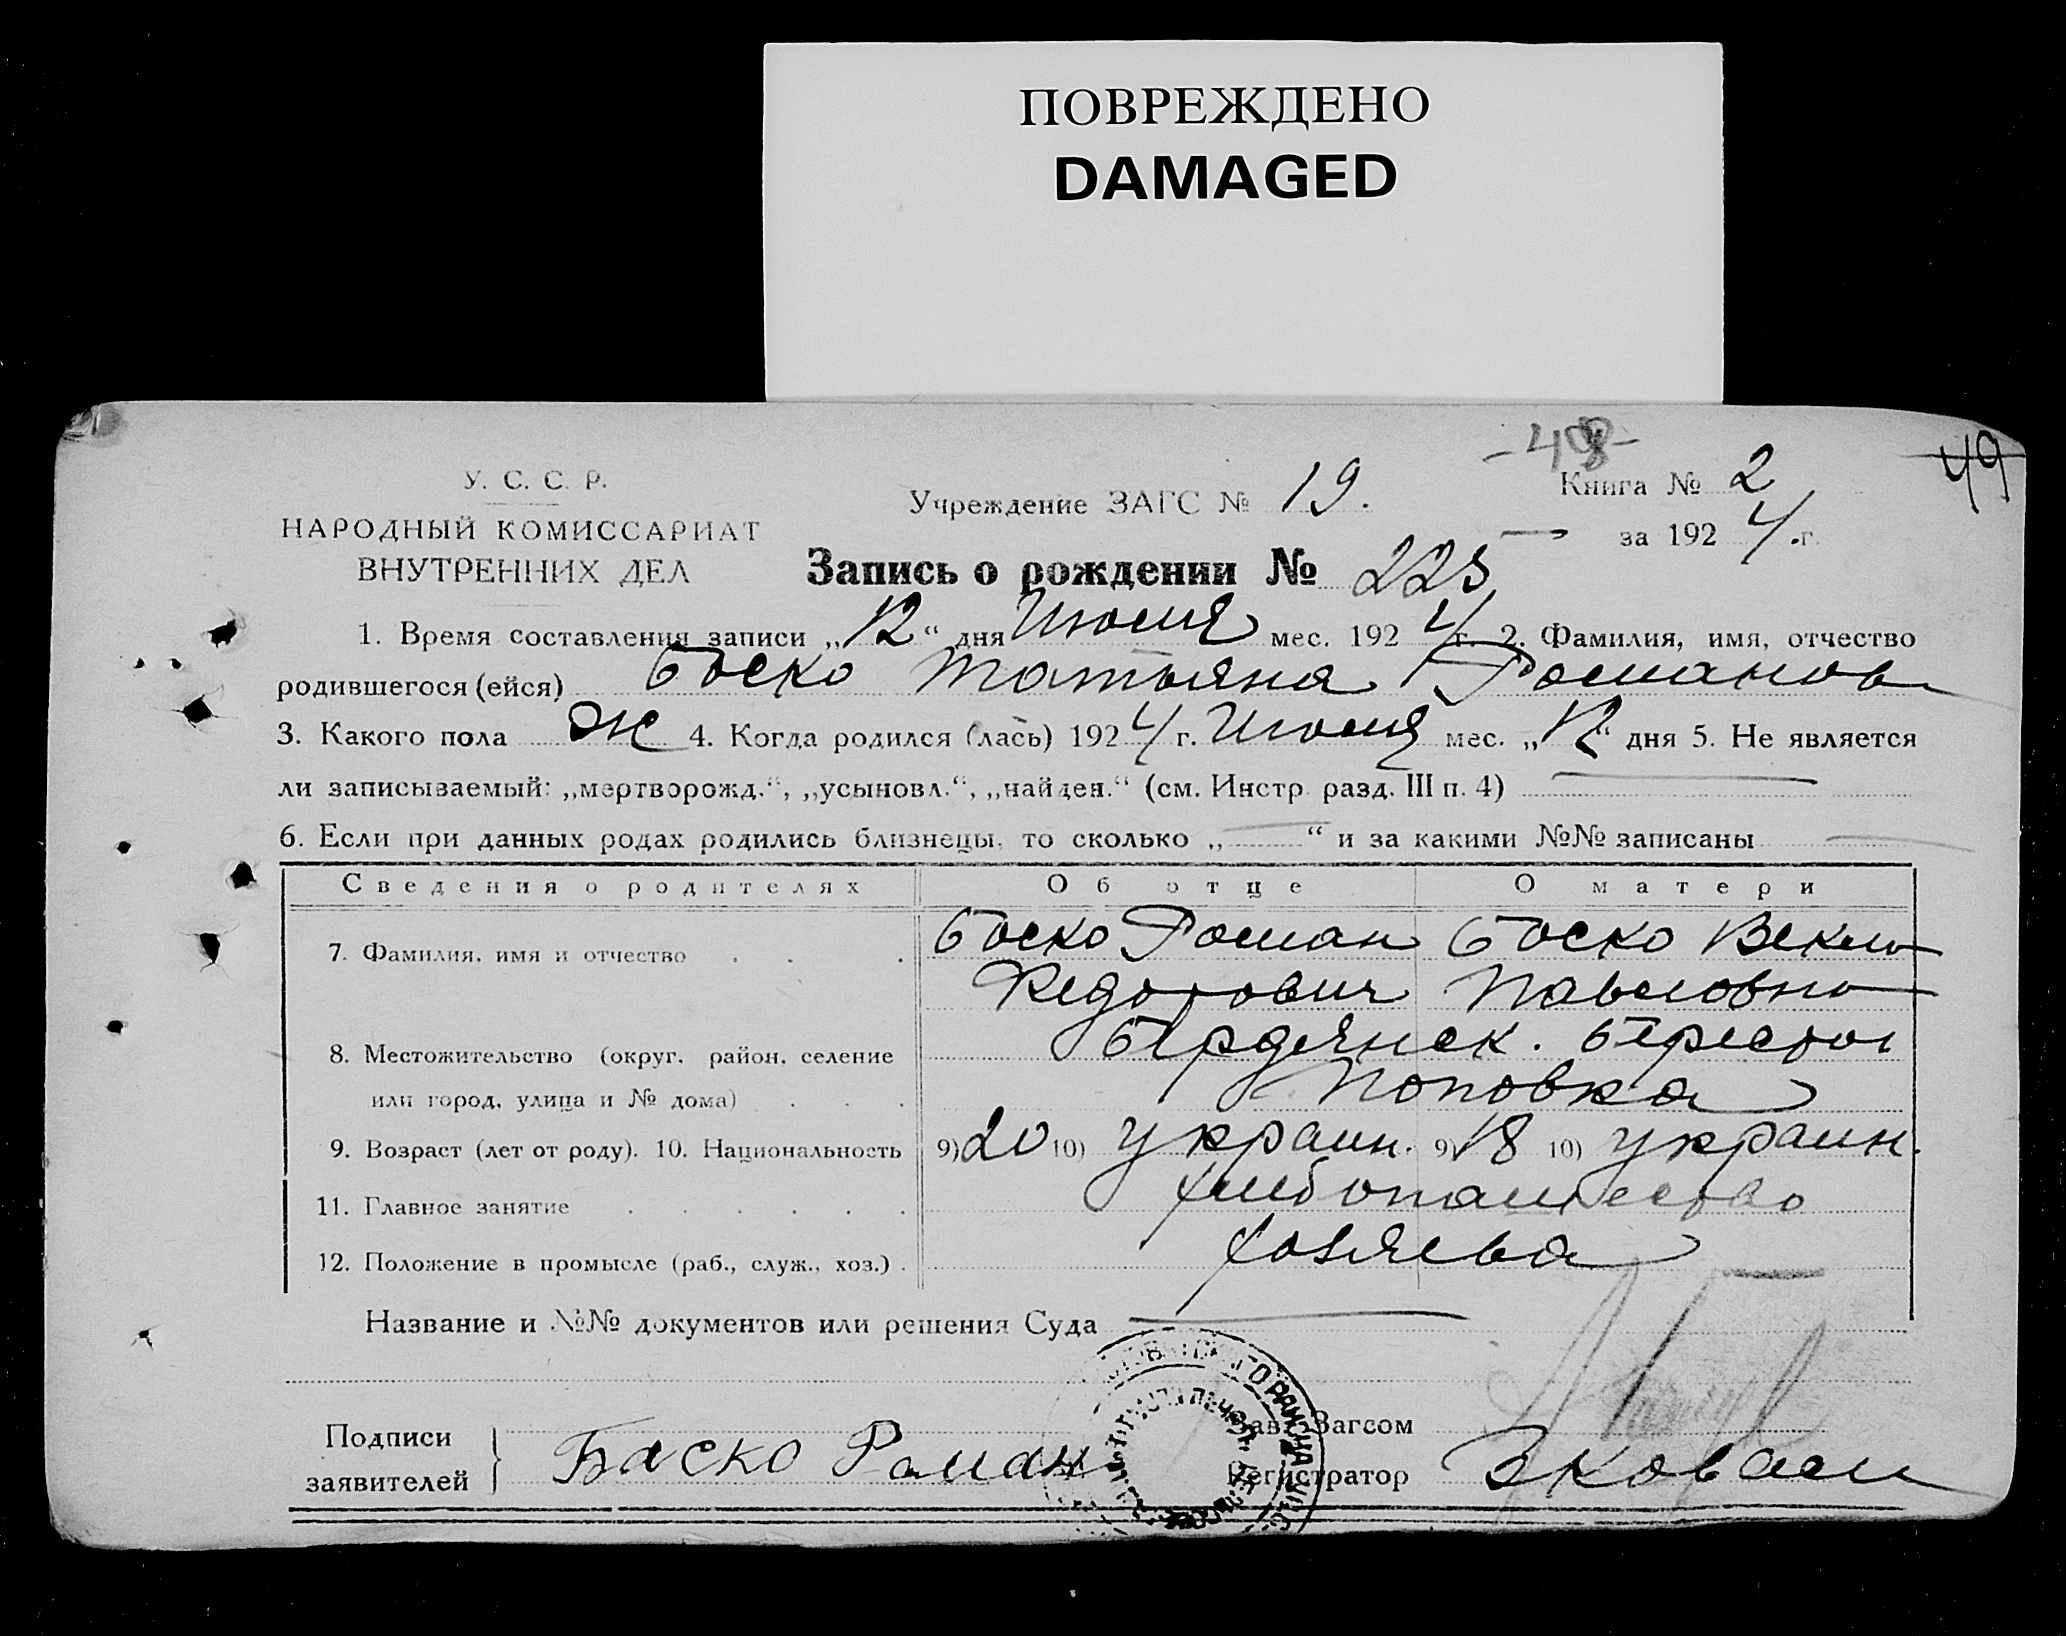 ПОВРЕЖДЕНО
DAMAGED
-48-
49
У. С. С. Р.
НАРОДНЫЙ КОМИССАРИАТ
ВНУТРЕННИХ ДЕЛ
Учреждение ЗАГС № 19.
Книга № 2
за 1924 г.
Запись о рождении № 225
1. Время составления записи „12“ дня Июля мес. 1924 г. 2. Фамилия, имя, отчество
родившегося (ейся) Баско Татьяна Романов
3. Какого пола Ж 4. Когда родился (лась) 1924 г. Июля мес. „12“ дня 5. Не является
ли записываемый: „мертворожд.“, „усыновл.“, „найден.“ (см. Инстр. разд. III п. 4)
6. Если при данных родах родились близнецы, то сколько „ “ и за какими №№ записаны
Сведения о родителях Об отце О матери
7. Фамилия, имя и отчество Баско Роман Баско Векла
Федорович Павловна
8. Местожительство (округ, район, селение Бердянск. Берестов
или город, улица и № дома) Поповка
9. Возраст (лет от роду). 10. Национальность 9) 20 10) украин. 9) 18 10) украин.
11. Главное занятие хлебопашество
12. Положение в промысле (раб., служ., хоз.) хозяева
Название и №№ документов или решения Суда
Подписи
заявителей
Баско Роман
Зав. Загсом
Регистратор